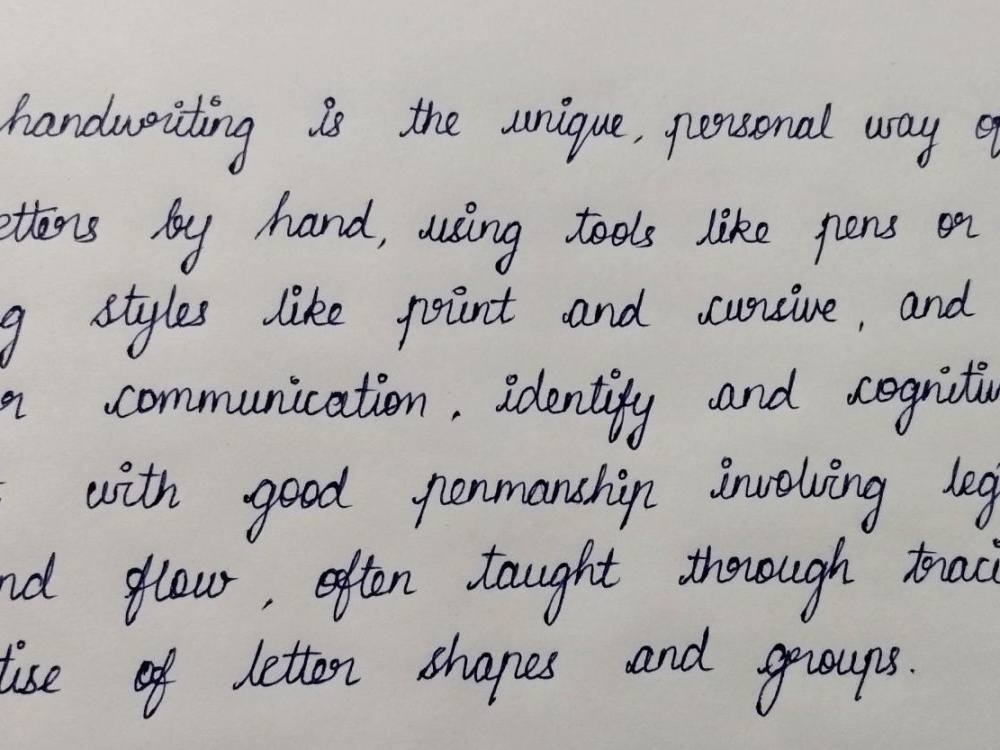 handwriting is the unique, personal way of
etters by hand, using tools like pens or
g styles like print and cursive, and
r communication, identify and cognitiv
with good penmanship involving leg
nd flow, often taught through traci
tise of letter shapes and groups.